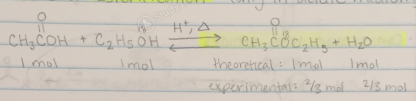 O 18 H⁺, Δ O 18
CH₃COH + C₂H₅OH ⇌ CH₃COC₂H₅ + H₂O
1 mol 1 mol theoretical: 1 mol 1 mol
experimental: 2/3 mol 2/3 mol